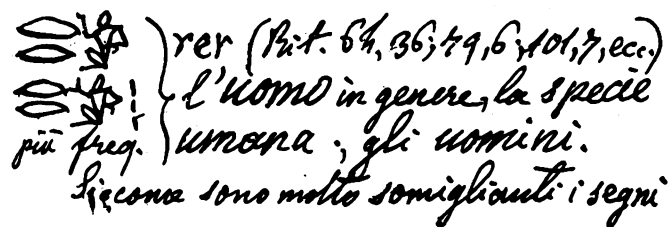 rer (Rit. 64, 36; 49, 6; 101, 7, ecc.)
l'uomo in genere, la specie
più freq. umana; gli uomini.
Siccome sono molto somiglianti i segni